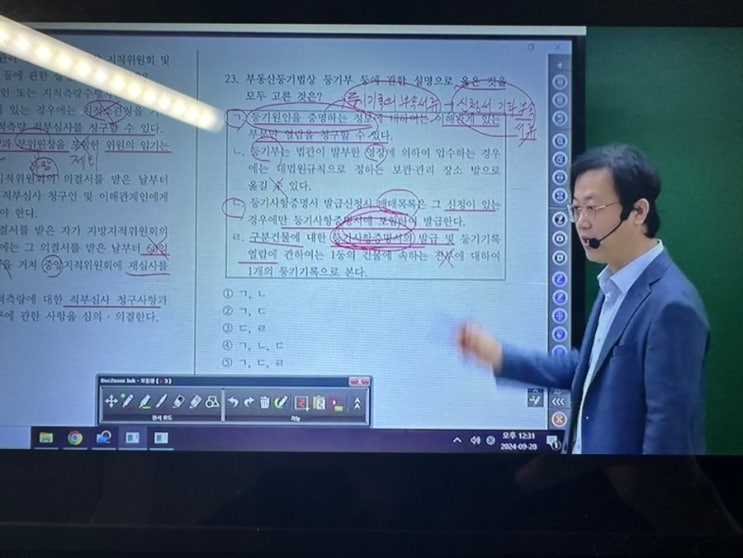 지적위원회 및
동에 관한 설
인 또는 지적측량수행
있는 경우에는
적측량 적부심사를 청구할 수 있다.
부위원장을 포함한 위원의 임기는
제외
지적위원회의 의결서를 받은 날부터
적부심사 청구인 및 이해관계인에게
야 한다.
결서를 받은 자가 지방지적위원회의
에는 그 의결서를 받은 날부터 60일
거쳐 중앙지적위원회에 재심사를
적측량에 대한 적부심사 청구사항과
에 관한 사항을 심의ㆍ의결한다.
23. 부동산등기법상 등기부 등에 관한 설명으로 옳은 것을
모두 고른 것은?
등기기록의 부속서류 → 신청서 기타 부속
서류
ㄱ. 등기원인을 증명하는 정보에 대하여는 이해관계 있는
부분만 열람을 청구할 수 있다.
ㄴ. 등기부는 법관이 발부한 영장에 의하여 압수하는 경우
에는 대법원규칙으로 정하는 보관·관리 장소 밖으로
옮길 수 있다.
ㄷ. 등기사항증명서 발급신청시 매매목록은 그 신청이 있는
경우에만 등기사항증명서에 포함하여 발급한다.
ㄹ. 구분건물에 대한 등기사항증명서의 발급 및 등기기록
열람에 관하여는 1동의 건물에 속하는 전부에 대하여
1개의 등기기록으로 본다.
① ㄱ, ㄴ
② ㄱ, ㄷ
③ ㄷ, ㄹ
④ ㄱ, ㄴ, ㄷ
⑤ ㄱ, ㄷ, ㄹ
DocZoom Ink - 모질펜 ( 3 )
판서 모드
기능
오후 12:31
2024-09-28